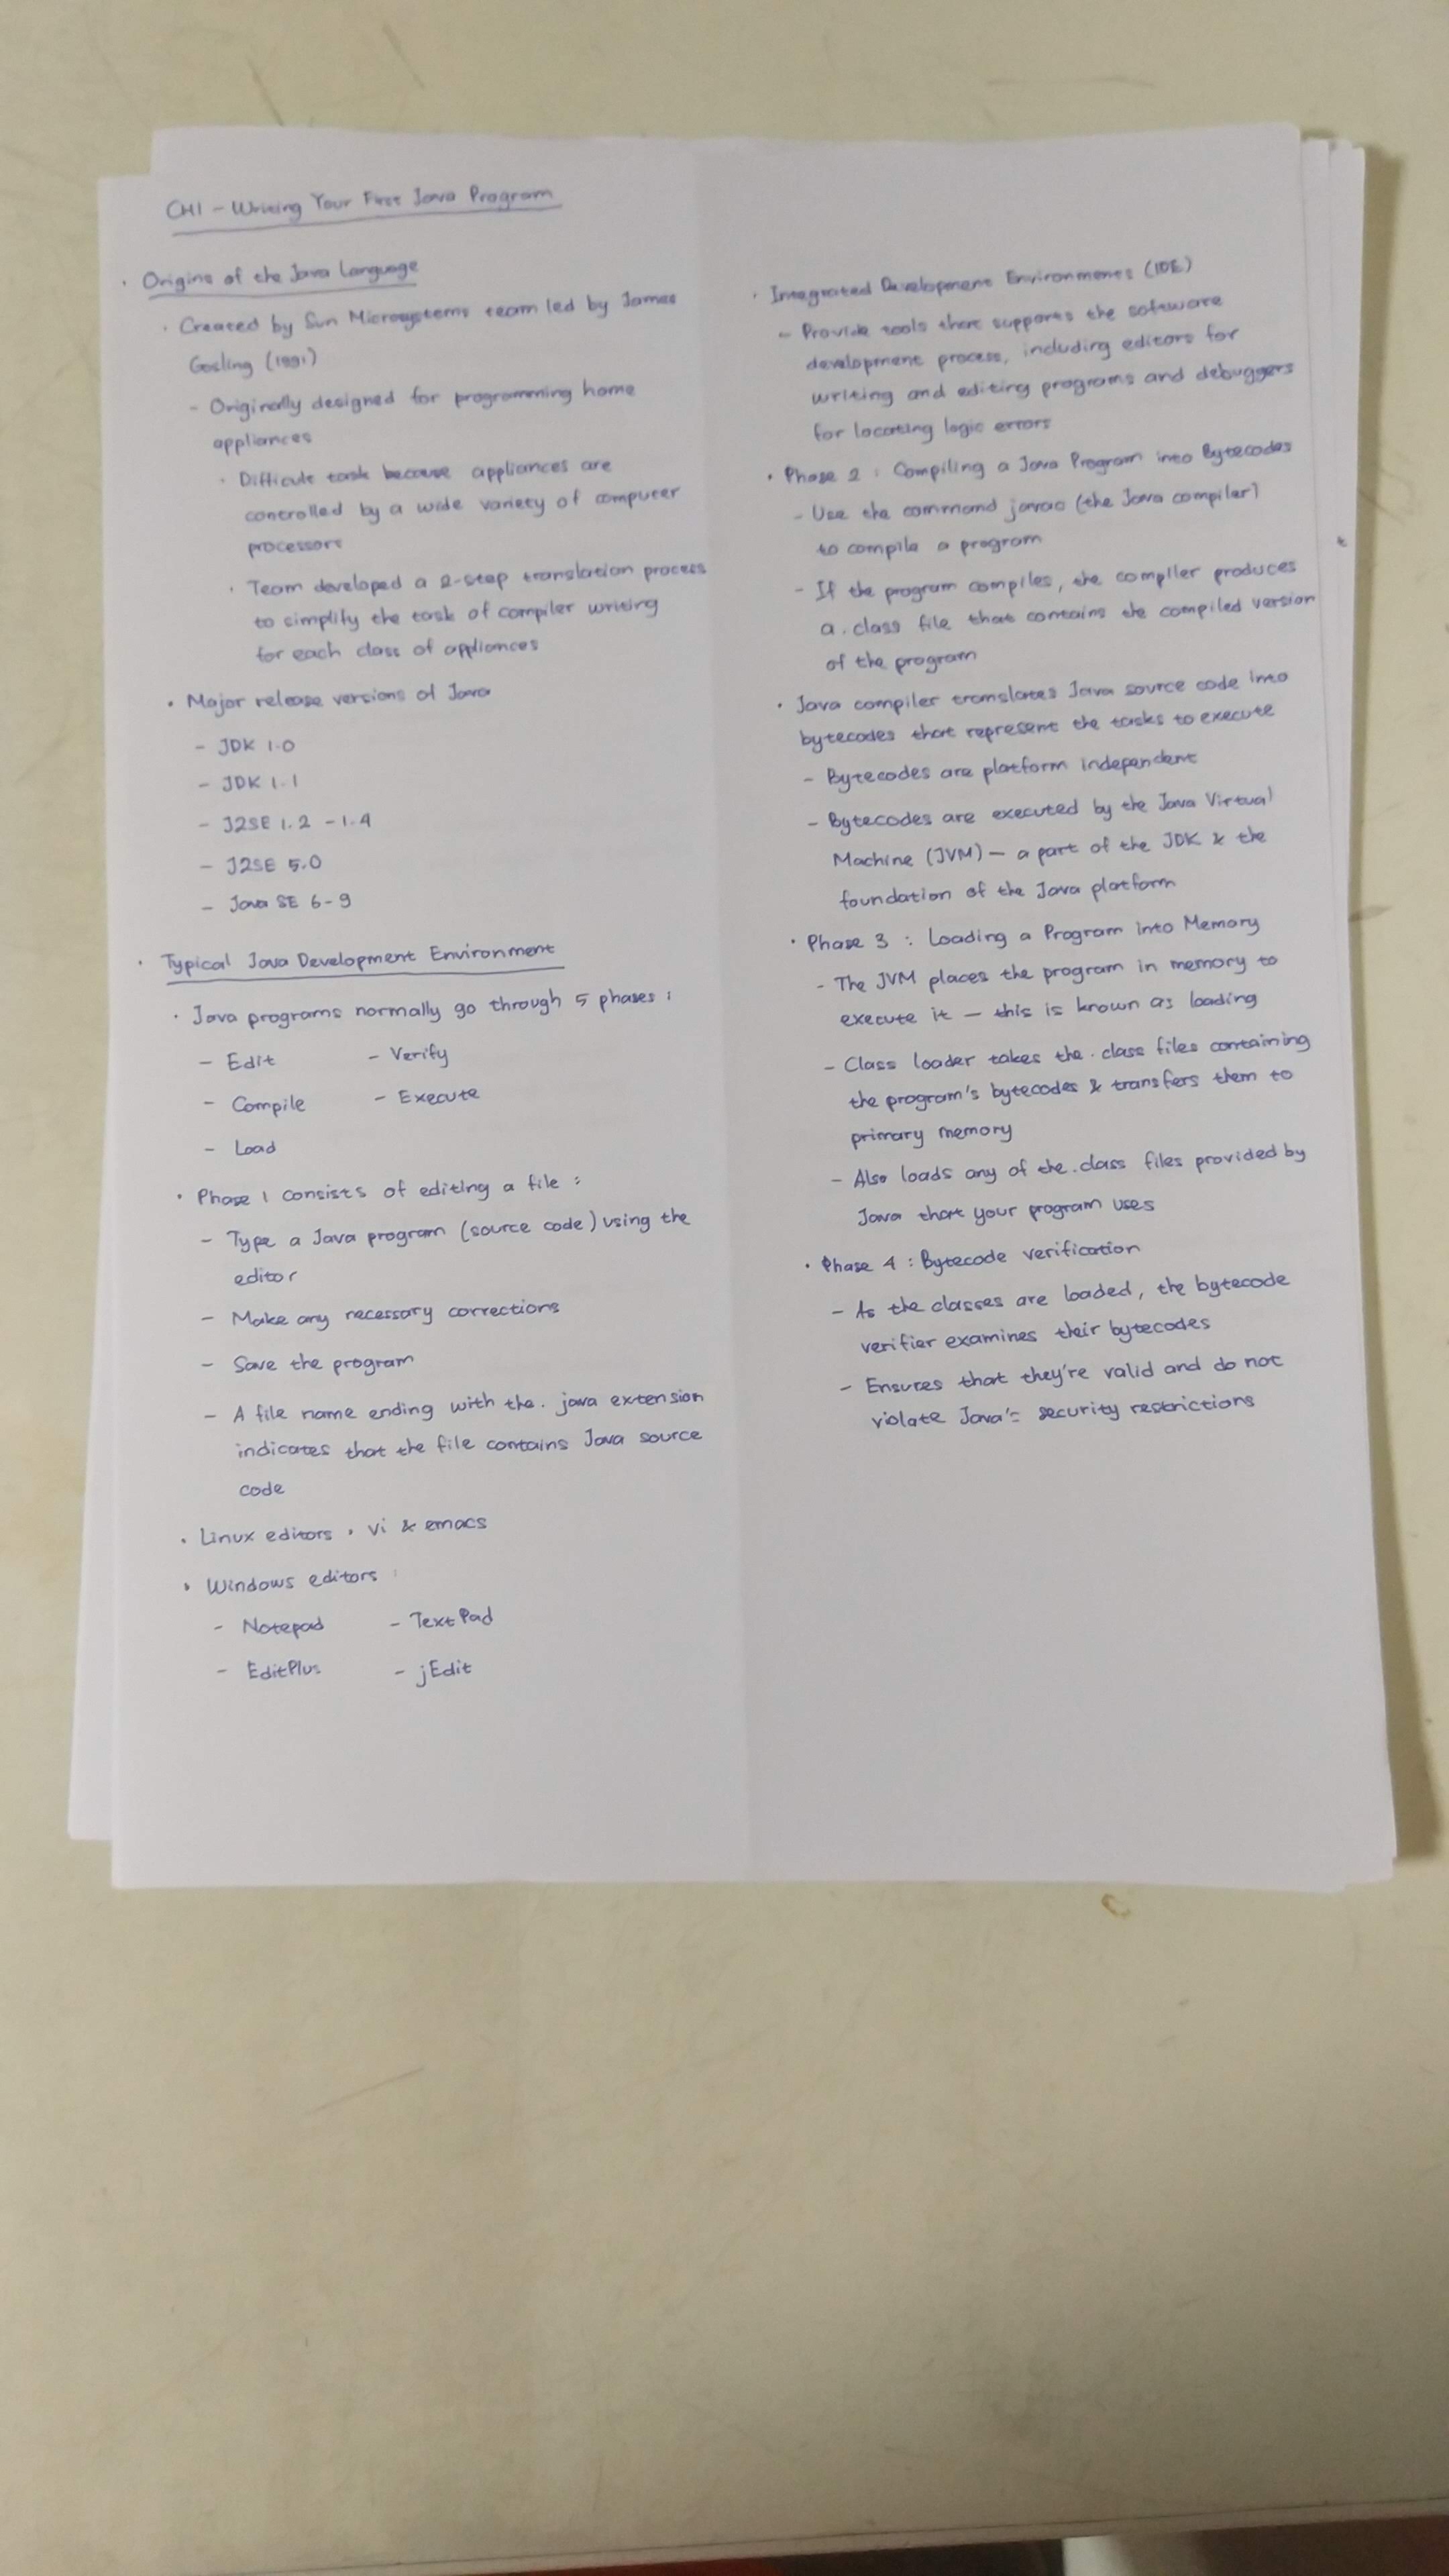 CH1 - Writing Your First Java Program
· Origins of the Java Language
· Created by Sun Microsystems team led by James
Gosling (1991)
- Originally designed for programming home
appliances
· Difficult task because appliances are
controlled by a wide variety of computer
processors
· Team developed a 2-step translation process
to simplify the task of compiler writing
for each class of appliances
· Major release versions of Java
- JDK 1.0
- JDK 1.1
- J2SE 1.2 - 1.4
- J2SE 5.0
- Java SE 6-9
· Typical Java Development Environment
· Java programs normally go through 5 phases :
- Edit - Verify
- Compile - Execute
- Load
· Phase 1 consists of editing a file :
- Type a Java program (source code) using the
editor
- Make any necessary corrections
- Save the program
- A file name ending with the .java extension
indicates that the file contains Java source
code
· Linux editors : vi & emacs
· Windows editors :
- Notepad - TextPad
- EditPlus - jEdit
· Integrated Development Environments (IDE)
- Provide tools that supports the software
development process, including editors for
writing and editing programs and debuggers
for locating logic errors
· Phase 2 : Compiling a Java Program into Bytecodes
- Use the command javac (the Java compiler)
to compile a program
- If the program compiles, the compiler produces
a .class file that contains the compiled version
of the program
· Java compiler translates Java source code into
bytecodes that represent the tasks to execute
- Bytecodes are platform independent
- Bytecodes are executed by the Java Virtual
Machine (JVM) — a part of the JDK & the
foundation of the Java platform
· Phase 3 : Loading a Program into Memory
- The JVM places the program in memory to
execute it — this is known as loading
- Class loader takes the .class files containing
the program's bytecodes & transfers them to
primary memory
- Also loads any of the .class files provided by
Java that your program uses
· Phase 4 : Bytecode verification
- As the classes are loaded, the bytecode
verifier examines their bytecodes
- Ensures that they're valid and do not
violate Java's security restrictions